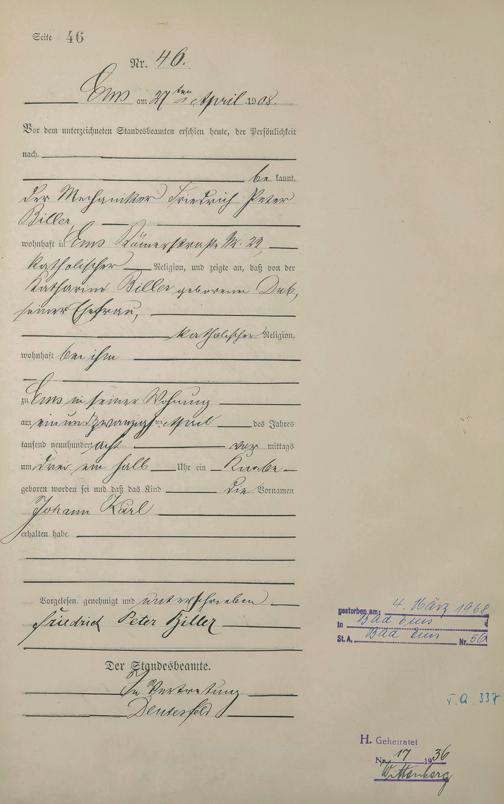 Seite 46
Nr. 46.
Ems am 27ten April 1908.
Vor dem unterzeichneten Standesbeamten erschien heute, der Persönlichkeit
nach
be kannt,
der Mechaniker Friedrich Peter
Biller
wohnhaft in Ems Römerstraße Nr. 22,
katholischer Religion, und zeigte an, daß von der
Katharina Biller geborenen
seiner Ehefrau,
katholischer Religion,
wohnhaft bei ihm
zu Ems in seiner Wohnung
am ein und zwanzigsten April des Jahres
tausend neunhundert acht vor mittags
um ein halb Uhr ein Knabe
geboren worden sei und daß das Kind die Vornamen
Johann Karl
erhalten habe.
Vorgelesen, genehmigt und unterschrieben
Friedrich Peter Biller
Der Standesbeamte.
In Vertretung
gestorben am: 4. März 1968
in Bad Ems
St.A. Bad Ems Nr. 50
337
H. Geheiratet
Nr. 17 1936
Wittenberg